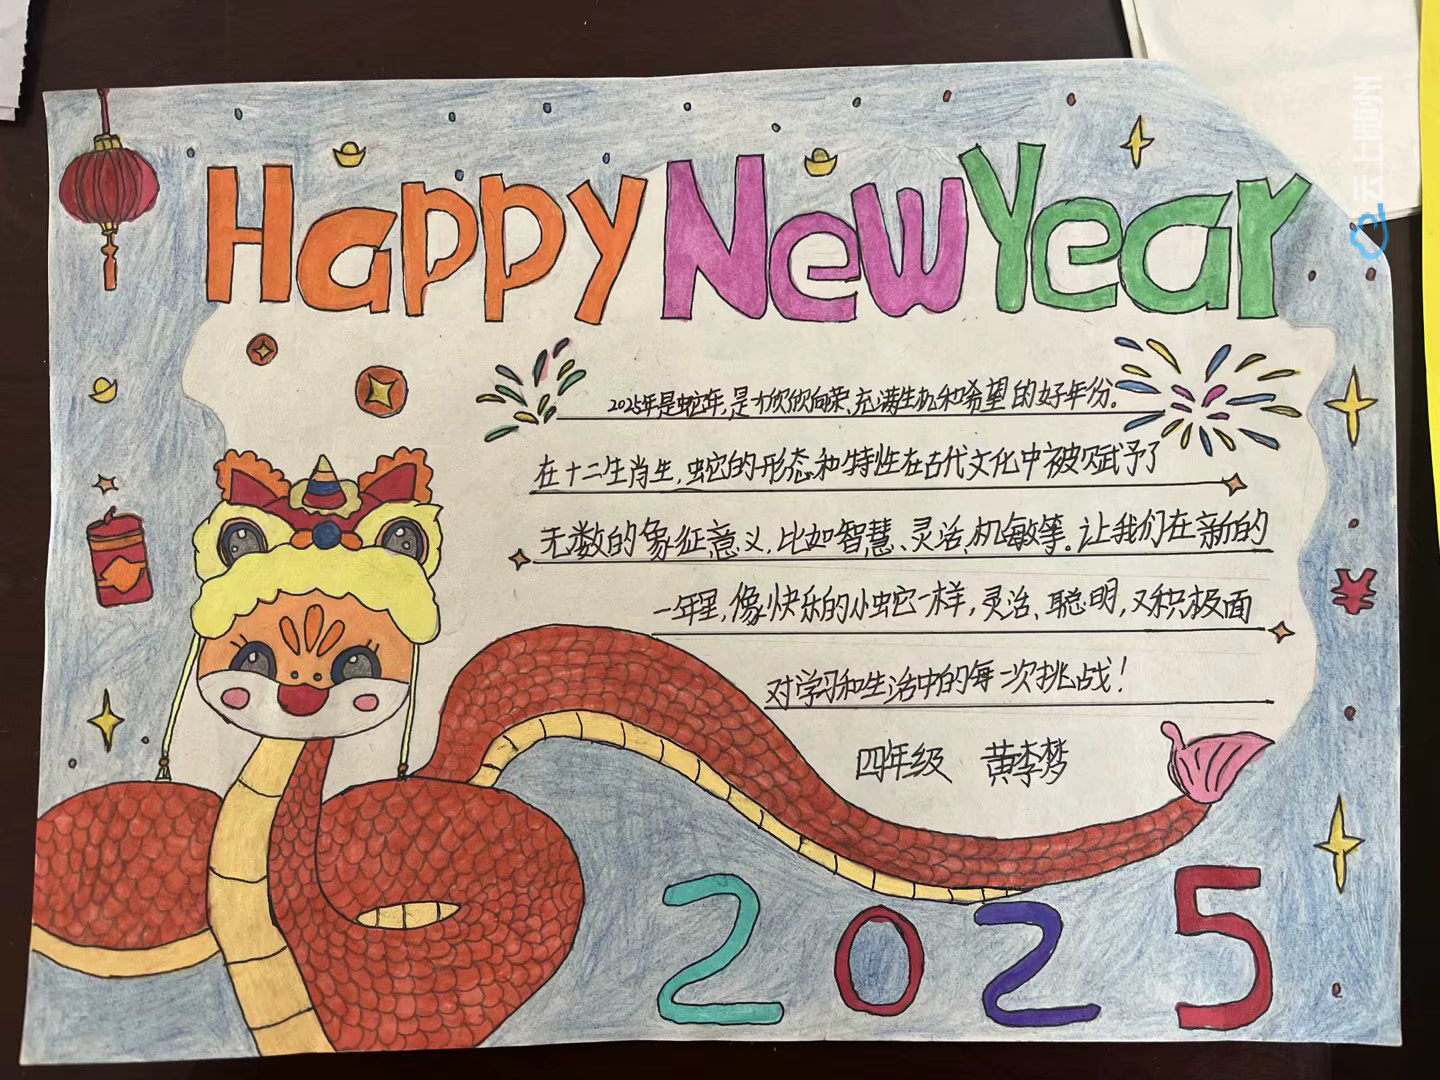 Happy New Year
2025年是蛇年,是个欣欣向荣,充满生机和希望的好年份。
在十二生肖生,蛇的形态和特性在古代文化中被赋予了
无数的象征意义,比如智慧、灵活、机敏等。让我们在新的
一年里,像快乐的小蛇它一样,灵活、聪明,又积极面
对学习和生活中的每一次挑战!
四年级 黄李梦
2025
云上随州